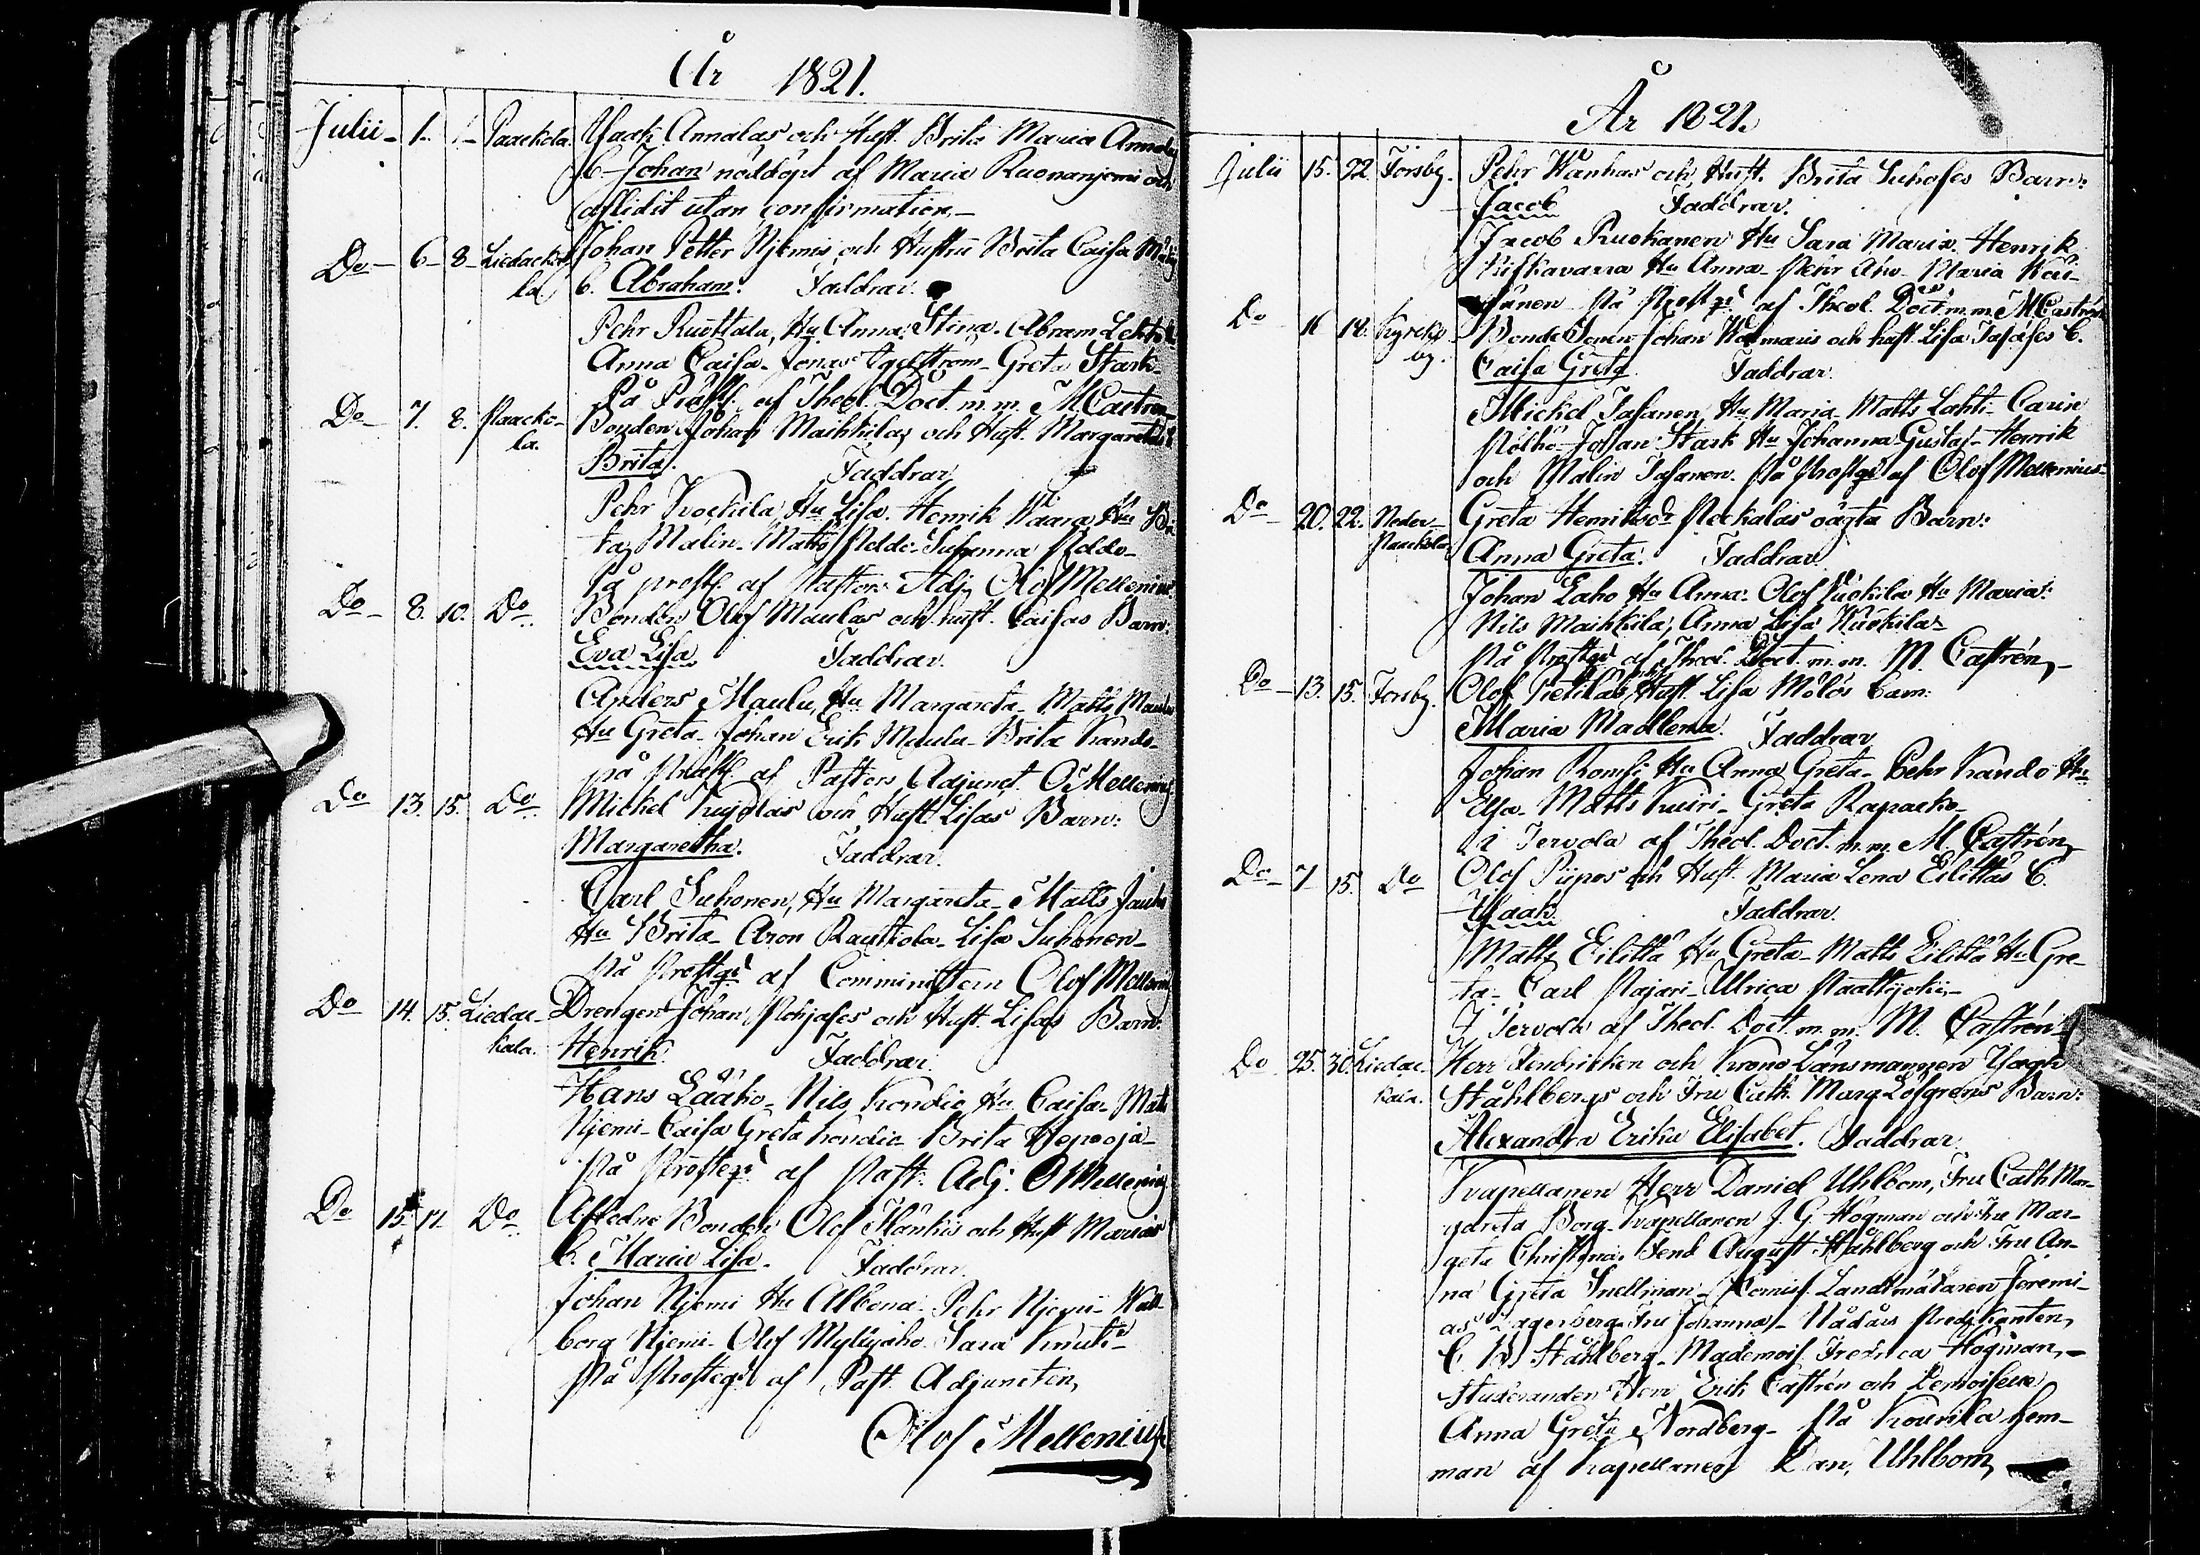 År 1821.
Julii - 1. 1. Paackola. Isaak Annalas och Hust. Brita Maria Annalas
b. Johan nöddöpt af Maria Ruonanjemi och
aflidit utan confirmation.-
Do - 6 - 8 - Liedacka- Johan Petter Njemis och Hustru Brita Caisa
la b. Abraham. Faddrar.
Pehr Ruottala, Hu Anna Stina. Abram
Anna Caisa - Jonas - Greta Stark -
På Prostg. af Theol. Doct. m. m. M Castren
Do - 7. 8. Paacko- Bonden Johan Maihkilas och Hust. Margaretas
la. Brita. Faddrar
Pehr Hu Lisa. Henrik Waara Hu Bri-
ta, Malin - Matts - Susanna
På prostg. af Pastors Adj. Olof Mellenius
Do - 8. 10. Do. Bonden Olof Maulas och hust. Caisas Barn:
Eva Lisa Faddrar.
Anders Maulu, Hu Margareta - Matts
Hu Greta - Johan Erik Maula - Brita Kando -
på Prostg. af Pastors Adjunct. O Mellenius
Do 13. 15. Do. Michel och Hust. Lisas Barn:
Margaretha. Faddrar.
Carl Suhonen, Hu Margareta - Matts
Hu Brita - Aron Rautiola - Lisa Suhonen -
På Prostgd af Comministern Olof Mellenius
Do 14. 15. Liedac- Drengen Johan Pohjases och Hust. Lisas Barn:
kala. Henrik. Faddrar.
Hans Lääko - Nils Kondio Hu Caisa - Mats
Njemi - Caisa Greta Kondio Brita
På Prostegd af Past: Adj. O Mellenius
Do 15. 17. Do Bonden Olof och Hust Marias
b. Maria Lisa. Faddrar.
Johan Njemi Hu Albena. Pehr Njemi - Wall-
borg Njemi - Olof Myllyaho - Sara
På Prostegd af Past. Adjuncten,
Olof Mellenius
År 1821.
Julii 15. 22. Forsby. Pehr Wänhas och Hust. Brita Suhoses Barn:
Jacob Faddrar.
Jacob Ruokanen Hu Sara Maria. Henrik
Hu Anna - Pehr - Maria
På Prostgd af Theol. Doct. m. m. M Castrén
Do 16 18. Kyrcko Bonde Sonen Johan och hust. Lisa Tasases b.
by. Caisa Greta Faddrar.
Mickel Tasanen Hu Maria - Matts Lahti - Carin
Johan Stark Hu Johanna - Gustaf - Henrik
och Malin Tasanen. På Prostgd af Olof Mellenius -
Do 20. 22. Neder- Greta Henriksdr oägta Barn:
Paackola. Anna Greta. Faddrar
Johan Laho Hu Anna. Olof Hu Maria.
Nils Maihkila, Anna Lisa
På Prostgd af Theol. Doct. m. m. M. Castrén, -
Do - 13. 15. Forsby. Olof Hust. Lisa Mölös barn:
Maria Madlena. Faddrar
Johan Romsi Hu Anna Greta - Pehr Kando Hu
Elsa - Matts Kuiri - Greta Rapacko -
i Tervola af Theol. Doct. m. m. M. Castrén,
Do - 7 15. Do Olof Piipos och Hust. Maria Lena Eilittäs b.
Isaak. Faddrar.
Matts Eilittä Hu Greta - Matts Eilittä Hu Gre-
ta - Carl Pajari - Ulrica
I Tervola af Theol. Doct. m. m. M. Castrén -
Do 25. 30. Liedac- Herr Fendrikken och Krono Länsmannen Isaak
kala. Ståhlbergs och Fru Cath. Marg. Löfgrens Barn:
Alexandra Erika Elisabet. Faddrar.
Kapellanen Herr Daniel Uhlbom, Fru Cath. Mar-
gareta Borg - Kapellanen J. G. Högman och Fru Mar-
geta Christina. Fend. August Ståhlberg och Fru An-
na Greta Snellman - Comis. Landtmätaren Jeremi-
as Lagerberg Fru Johanna - Nådårs Predikanten,
Ståhlberg. Mademois. Fredrica Högman, -
Studeranden Herr Erik Castrén och Demoiselle
Anna Greta Nordberg - På hem-
man af kapellanen Dan. Uhlbom,